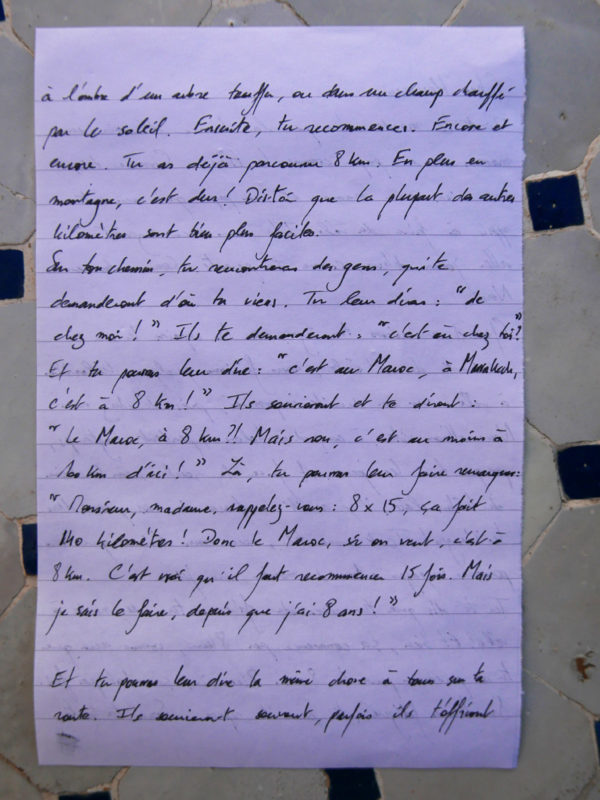 à l'ombre d'un arbre touffu, ou dans un champ chauffé
par le soleil. Ensuite, tu recommences. Encore et
encore. Tu as déjà parcouru 8 km. En plus en
montagne, c'est dur! Dis-toi que la plupart des autres
kilomètres sont bien plus faciles.
Sur ton chemin, tu rencontreras des gens, qui te
demanderont d'où tu viens. Tu leur diras : "de
chez moi ! " Ils te demanderont : "c'est où chez toi"?
Et tu pourras leur dire : "c'est au Maroc, à Marrakech,
c'est à 8 km ! " Ils souriront et te diront :
" Le Maroc, à 8 km ?! Mais non, c'est au moins à
100 km d'ici ! " Là, tu pourras leur faire remarquer :
" Monsieur, madame, rappelez-vous : 8 x 15, ça fait
140 kilomètres ! Donc le Maroc, si on veut, c'est à
8 km. C'est vrai qu'il faut recommencer 15 fois. Mais
je sais le faire, depuis que j'ai 8 ans ! "
Et tu pourras leur dire la même chose à tous sur ta
route. Ils souriront souvent, parfois ils t'offriront